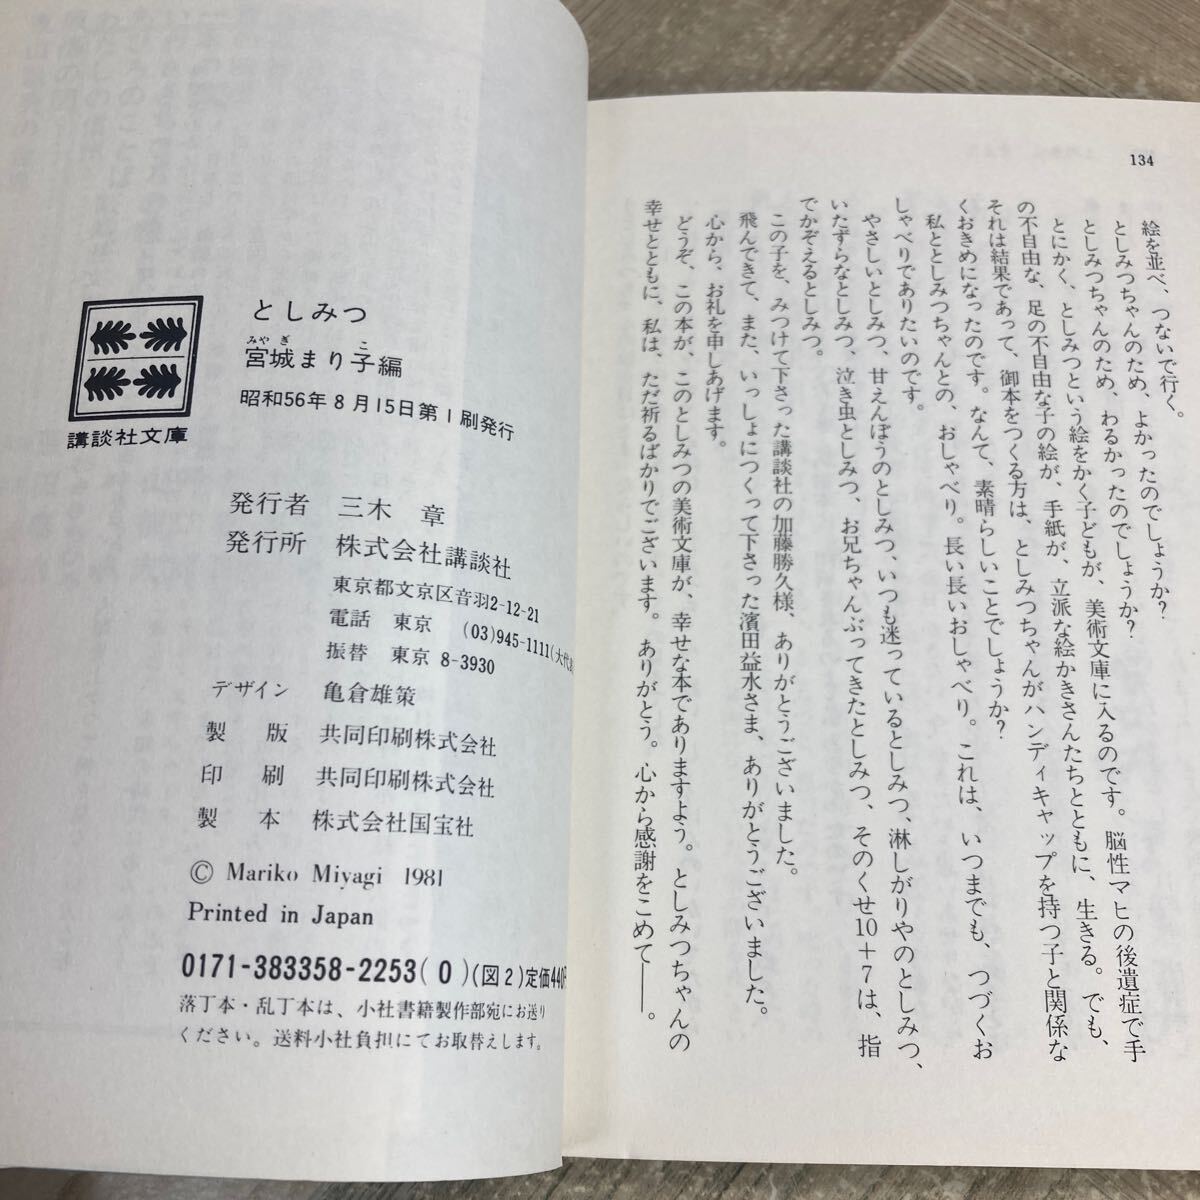 134
絵を並べ、つないで行く。
としみつちゃんのため、よかったのでしょうか?
としみつちゃんのため、わるかったのでしょうか?
とにかく、としみつという絵をかく子どもが、美術文庫に入るのです。脳性マヒの後遺症で手
の不自由な、足の不自由な子の絵が、手紙が、立派な絵かきさんたちとともに、生きる。でも、
それは結果であって、御本をつくる方は、としみつちゃんがハンディキャップを持つ子と関係な
くおきめになったのです。なんて、素晴らしいことでしょうか?
私ととしみつちゃんとの、おしゃべり。長い長いおしゃべり。これは、いつまでも、つづくお
しゃべりでありたいのです。
やさしいとしみつ、甘えんぼうのとしみつ、いつも迷っているとしみつ、淋しがりやのとしみつ、
いたずらなとしみつ、泣き虫としみつ、お兄ちゃんぶってきたとしみつ、そのくせ10+7は、指
でかぞえるとしみつ。
この子を、みつけて下さった講談社の加藤勝久様、ありがとうございました。
飛んできて、また、いっしょにつくって下さった濱田益水さま、ありがとうございました。
心から、お礼を申しあげます。
どうぞ、この本が、このとしみつの美術文庫が、幸せな本でありますよう。としみつちゃんの
幸せとともに、私は、ただ祈るばかりでございます。ありがとう。心から感謝をこめて――。
講談社文庫
としみつ
みやぎ こ
宮城まり子編
昭和56年8月15日第1刷発行
発行者 三木 章
発行所 株式会社講談社
東京都文京区音羽2-12-21
電話 東京 (03)945-1111(大代表
振替 東京 8-3930
デザイン 亀倉雄策
製版 共同印刷株式会社
印刷 共同印刷株式会社
製本 株式会社国宝社
© Mariko Miyagi 1981
Printed in Japan
0171-383358-2253(0)(図2)定価440円
落丁本・乱丁本は、小社書籍製作部宛にお送り
ください。送料小社負担にてお取替えします。